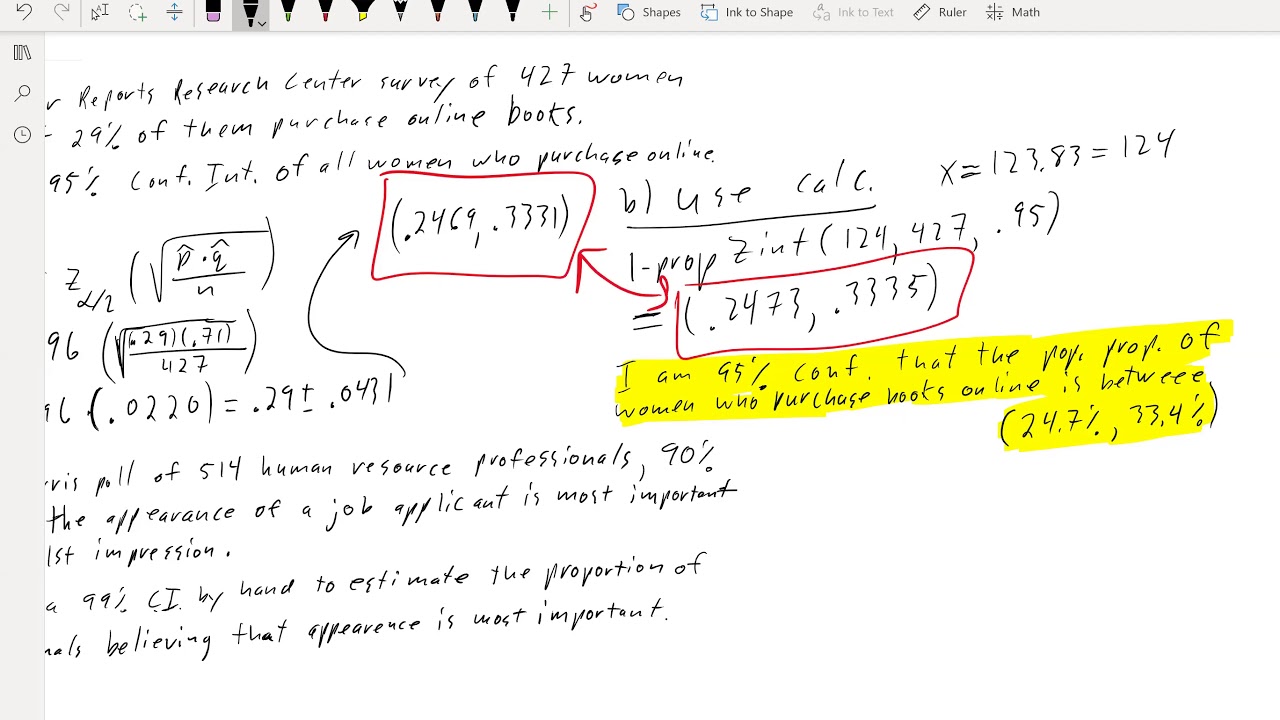 Shapes
Ink to Shape
Ink to Text
Ruler
Math
r Reports Research Center survey of 427 women
29% of them purchase online books.
95% Conf. Int. of all women who purchase online.
(.2469, .3331)
Z α/2 (√ p̂·q̂ / n)
96 (√ (.29)(.71) / 427)
96 (.0220) = .29 ± .0431
b) Use calc.
x = 123.83 = 124
1-prop Zint(124, 427, .95)
= (.2473, .3335)
I am 95% conf. that the pop. prop. of
women who purchase books online is betweee
(24.7%, 33.4%)
rris poll of 514 human resource professionals, 90%
the appearance of a job applicant is most important
1st impression.
a 99% C.I. by hand to estimate the proportion of
nals believing that appearence is most important.